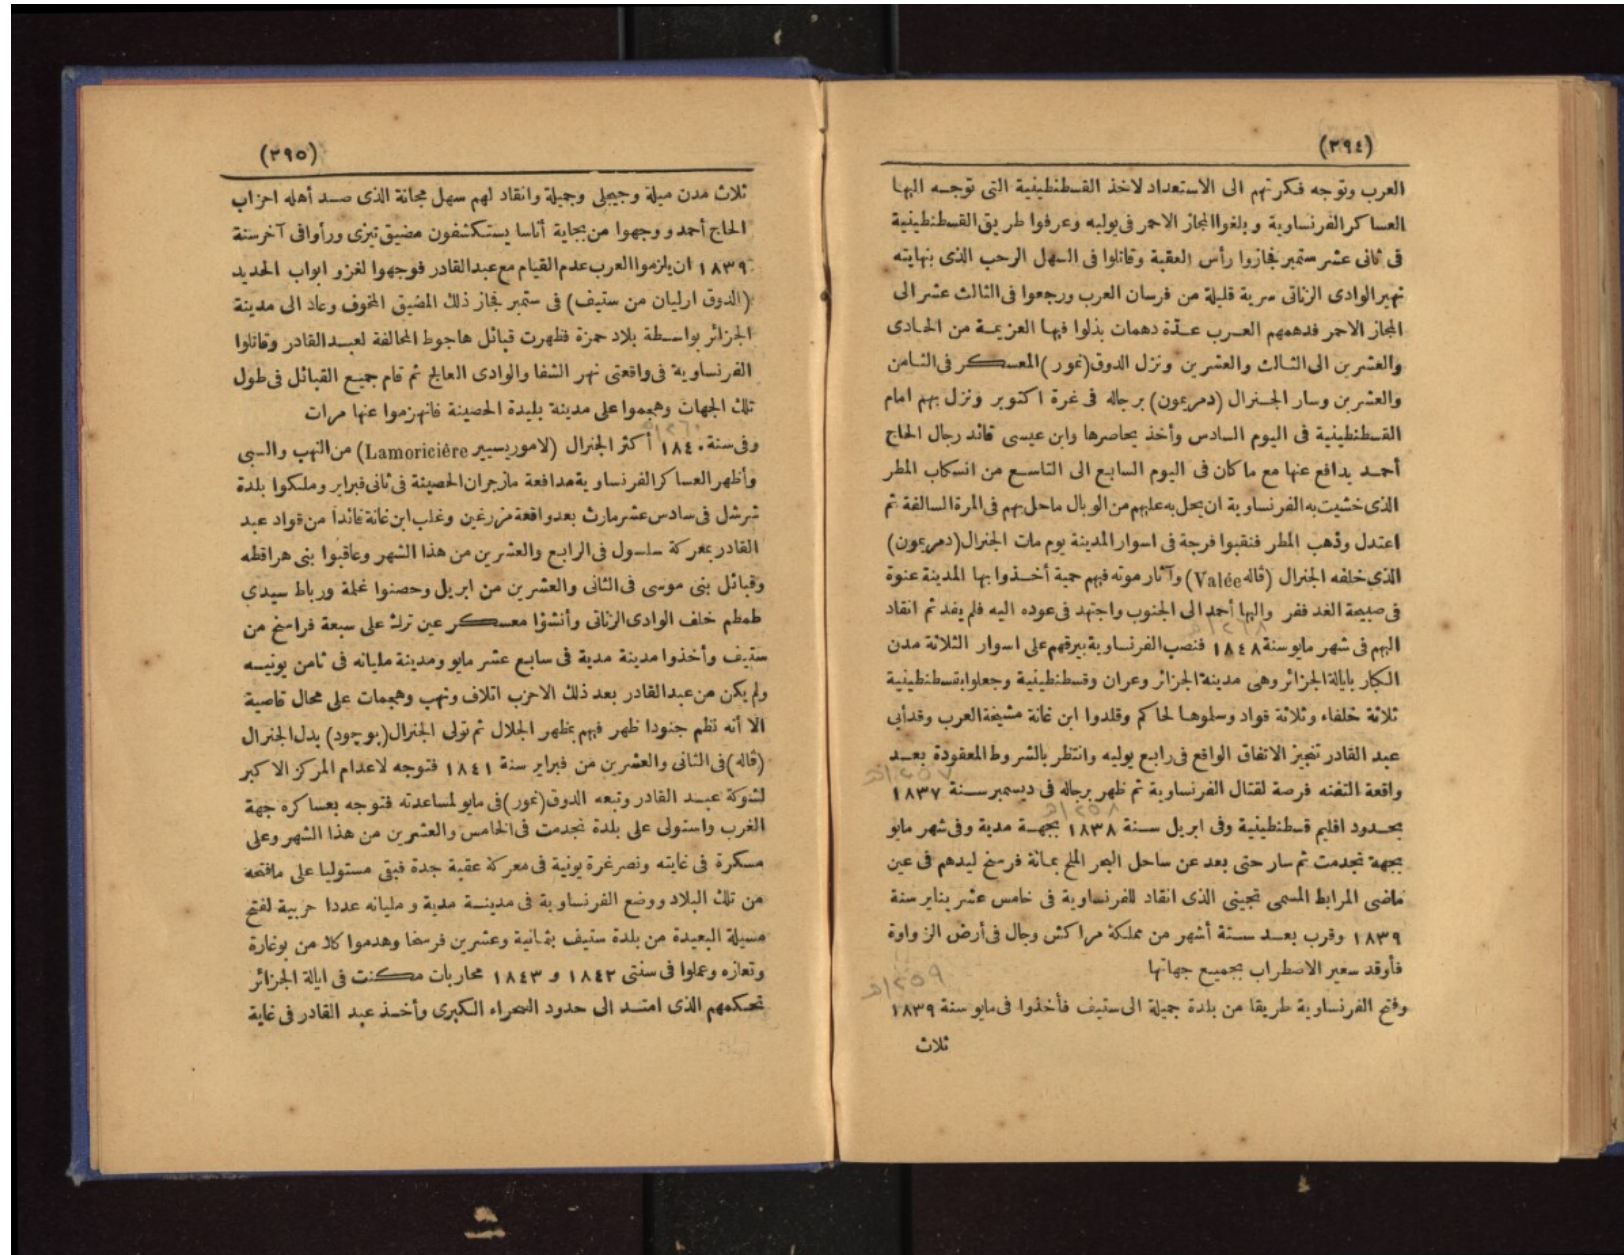 (٣٩٤)
العرب وتوجه فكرتهم الى الاستعداد لاخذ القسطنطينية التى توجه اليها
العساكر الفرنساوية وبلغوا المجاز الاحمر فى يوليه وعرفوا طريق القسطنطينية
فى ثانى عشر ستمبر فجازوا رأس العقبة وقاتلوا فى السهل الرحب الذى بنهايته
نهير الوادى الزناتى سرية قليلة من فرسان العرب ورجعوا فى الثالث عشر الى
المجاز الاحمر فدهمهم العرب عدّة دهمات بذلوا فيها العزيمة من الحادى
والعشرين الى الثالث والعشرين ونزل الدوق (نمور) المعسكر فى الثامن
والعشرين وسار الجنرال (دمريمون) برجاله فى غرة اكتوبر ونزل بهم امام
القسطنطينية فى اليوم السادس وأخذ يحاصرها وابن عيسى قائد رجال الحاج
أحمد يدافع عنها مع ما كان فى اليوم السابع الى التاسع من انسكاب المطر
الذى خشيت به الفرنساوية ان يحل به عليهم من الوبال ما حل بهم فى المرة السالفة ثم
اعتدل وذهب المطر فنقبوا فرجة فى اسوار المدينة يوم مات الجنرال (دمريمون)
الذى خلفه الجنرال (ڤاله Valée) وآثار موته فيهم حمية أخذوا بها المدينة عنوة
فى صبيحة الغد ففر واليها أحمد الى الجنوب واجتهد فى عوده اليه فلم يفد ثم انقاد
اليهم فى شهر مايو سنة ١٨٤٨ فنصب الفرنساوية بيرقهم على اسوار الثلاثة مدن
الكبار بايالة الجزائر وهى مدينة الجزائر وعران وقسطنطينية وجعلوا بقسطنطينية
ثلاثة خلفاء وثلاثة قواد وسلموها لحاكم وقلدوا ابن غانة مشيخة العرب وقد أبى
عبد القادر تنجيز الاتفاق الواقع فى رابع يوليه وانتظر بالشروط المعقودة بعد
واقعة التفنه فرصة لقتال الفرنساوية ثم ظهر برجاله فى ديسمبر سنة ١٨٣٧
بحدود اقليم قسطنطينية وفى ابريل سنة ١٨٣٨ بجهة مدية وفى شهر مايو
بجهة تجدمت ثم سار حتى بعد عن ساحل البحر الملح بمائة فرسخ ليدهم فى عين
ماضى المرابط المسمى تجينى الذى انقاد للفرنساوية فى خامس عشر يناير سنة
١٨٣٩ وقرب بعد ستة أشهر من مملكة مراكش وجال فى أرض الزواوة
فأوقد سعير الاضطراب بجميع جهاتها
وفتح الفرنساوية طريقا من بلدة جميلة الى ستيف فأخذوا فى مايو سنة ١٨٣٩
ثلاث
١٢٦٨
١٢٥٧هـ
١٢٥٨هـ
١٢٥٩هـ
(٣٩٥)
ثلاث مدن ميلة وجيجلى وجميلة وانقاد لهم سهل مجانة الذى صد أهله احزاب
الحاج أحمد ووجهوا من بجاية أناسا يستكشفون مضيق تيزى ورأوا فى آخر سنة
١٨٣٩ ان يلزموا العرب عدم القيام مع عبد القادر فوجهوا لغزو ابواب الحديد
(الدوق ارليان من ستيف) فى ستمبر فجاز ذلك المضيق المخوف وعاد الى مدينة
الجزائر بواسطة بلاد حمزة فظهرت قبائل هاجوط المخالفة لعبد القادر وقاتلوا
الفرنساوية فى واقعتى نهر الشفا والوادى العايج ثم قام جميع القبائل فى طول
تلك الجهات وهجموا على مدينة بليدة الحصينة فانهزموا عنها مرات
وفى سنة ١٨٤٠ أكثر الجنرال (لاموريسيير Lamoriciére) من النهب والسبى
وأظهر العساكر الفرنساوية مدافعة مازجران الحصينة فى ثانى فبراير وملكوا بلدة
شرشل فى سادس عشر مارث بعد واقعة مزرغين وغلب ابن غانة قائدا من قواد عبد
القادر بمعركة سلسول فى الرابع والعشرين من هذا الشهر وعاقبوا بنى هراقطه
وقبائل بنى موسى فى الثانى والعشرين من ابريل وحصنوا غلمة ورباط سيدى
طمطم خلف الوادى الزناتى وأنشؤا معسكر عين ترك على سبعة فراسخ من
ستيف وأخذوا مدينة مدية فى سابع عشر مايو ومدينة مليانه فى ثامن يونيسه
ولم يكن من عبد القادر بعد ذلك الاحزب اتلاف ونهب وهجمات على محال قاصية
الا أنه نظم جنودا ظهر فيهم بمظهر الجلال ثم تولى الجنرال (بوچود) بدل الجنرال
(ڤاله) فى الثانى والعشرين من فبراير سنة ١٨٤١ فتوجه لاعدام المركز الاكبر
لشوكة عبد القادر وتبعه الدوق (نمور) فى مايو لمساعدته فتوجه بعساكره جهة
الغرب واستولى على بلدة تجدمت فى الخامس والعشرين من هذا الشهر وعلى
مسكرة فى غايته ونصر غرة يونية فى معركة عقبة جدة فبقى مستوليا على ما فتحه
من تلك البلاد ووضع الفرنساوية فى مدينة مدية و مليانه عددا حربية لفتح
مسيلة البعيدة من بلدة ستيف بثمانية وعشرين فرسخا وهدموا كلا من بوغارة
وتعازه وعملوا فى سنتى ١٨٤٢ و ١٨٤٣ محاربات مكنت فى ايالة الجزائر
تحكمهم الذى امتد الى حدود الصحراء الكبرى وأخذ عبد القادر فى غاية